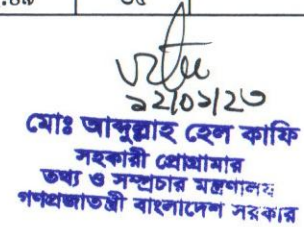 ১২/০১/২৩
মোঃ আব্দুল্লাহ হেল কাফি
সহকারী প্রোগ্রামার
তথ্য ও সম্প্রচার মন্ত্রণালয়
গণপ্রজাতন্ত্রী বাংলাদেশ সরকার